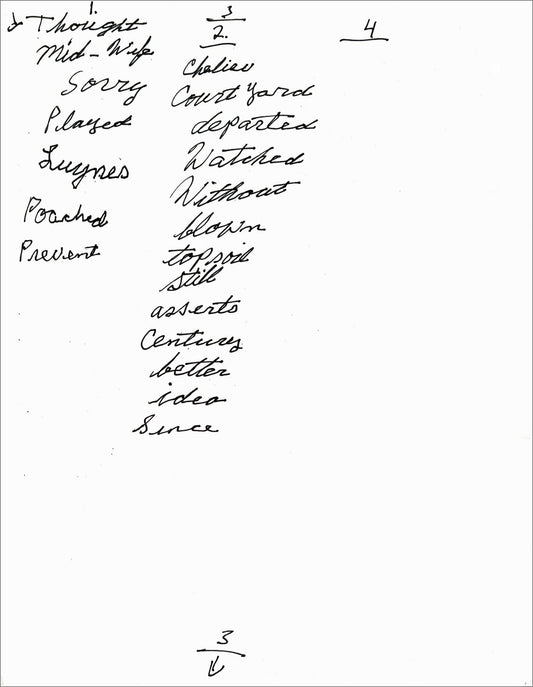 1.
Thought
Mid-Wife
Sorry
Played
Luynes
Poached
Prevent
3
2.
Court Yard
departed
Watched
Without
blown
topsoil
still
asserts
Century
better
idea
Since
4
3